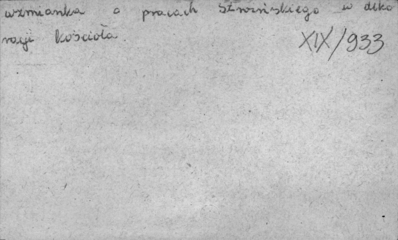 wzmianka o pracach Szwińskiego w deko
racji kościoła.
XIX/933